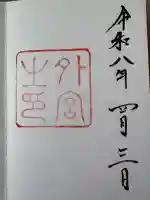 令和八年四月三日
外宮之印